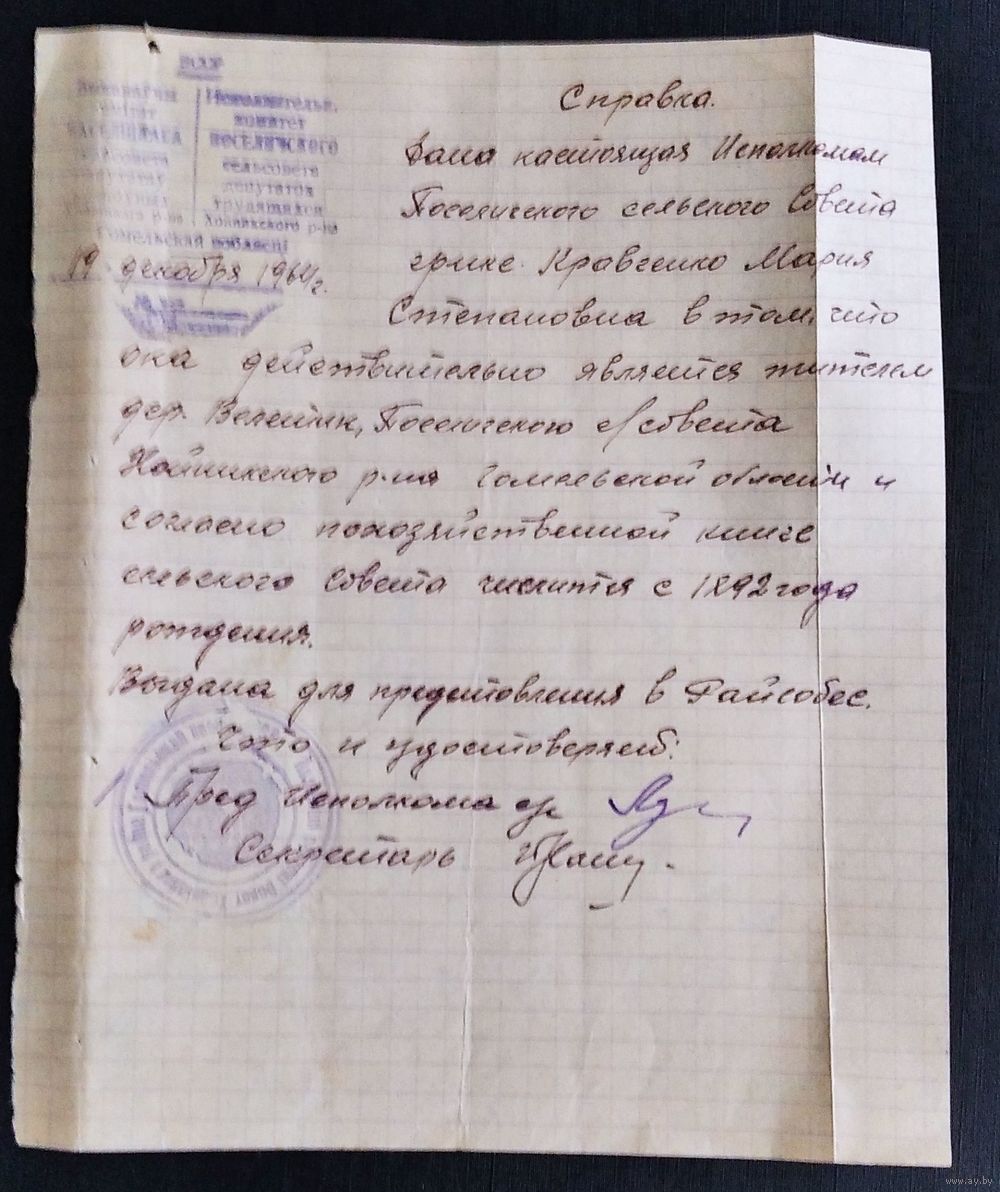 БССР
Исполнительн.
комитет
Поселичского
сельсовета
депутатов
трудящихся
Хойникского р-на
Гомельская вобласці
19 декабря 1964 г.
Справка.
Дана настоящая Исполкомам
Поселичского сельского Совета
гр-ке Кравченко Мария
Степановна в том, что
она действительно является жителем
дер. Велетин, Поселичского с/совета
Хойникского р-на Гомельской области и
согласно похозяйственной книге
сельского Совета числится с 1892 года
рождения.
Выдана для представления в Райсобес.
Что и удостоверяет:
Пред Исполкома с/с
Секретарь
www.ay.by